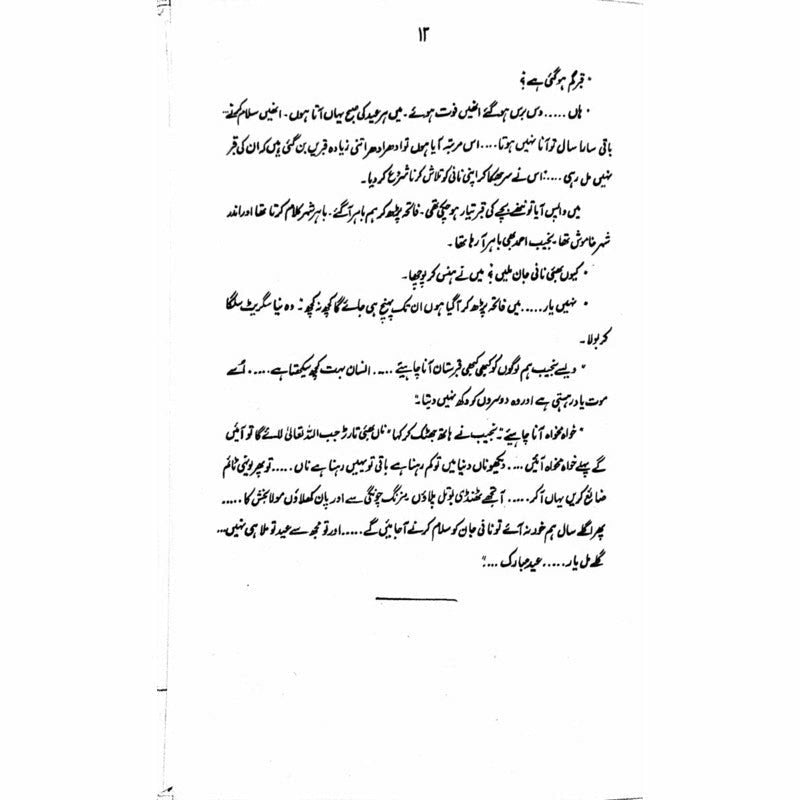 ۱۲
" قبر گم ہو گئی ہے ؟
" ہاں ..... دس برس ہو گئے انھیں فوت ہوئے ۔ میں ہر عید کی صبح یہاں آتا ہوں ۔ انھیں سلام کہنے
باقی سارا سال تو آنا نہیں ہوتا .... اس مرتبہ آیا ہوں تو ادھر ادھر اتنی زیادہ قبریں بن گئی ہیں کہ ان کی قبر
نہیں مل رہی ...." اس نے سر جھکا کر اپنی نانی کو تلاش کرنا شروع کر دیا ۔
میں واپس آیا تو ننھے بچے کی قبر تیار ہو چکی تھی ۔ فاتحہ پڑھ کر ہم باہر آگئے ۔ باہر شہر کلام کرتا تھا اور اندر
شہر خاموش تھا ۔ نجیب احمد بھی باہر آ رہا تھا ۔
" کیوں بھئی نانی جان ملیں ؟ میں نے ہنس کر پوچھا ۔
" نہیں یار ..... میں فاتحہ پڑھ کر آگیا ہوں ان تک پہنچ ہی جائے گا کچھ نہ کچھ " وہ نیا سگریٹ سلگا
کر بولا ۔
" ویسے نجیب ہم لوگوں کو کبھی کبھی قبرستان آنا چاہیئے ..... انسان بہت کچھ سیکھتا ہے ..... اُسے
موت یاد رہتی ہے اور وہ دوسروں کو دکھ نہیں دیتا ۔"
" خواہ مخواہ آنا چاہیئے " نجیب نے ہاتھ جھٹک کر کہا " ناں بھئی تارڑ جب اللہ تعالیٰ لائے گا تو آئیں
گے پہلے خواہ مخواہ آئیں .... دیکھو ناں دنیا میں تو کم رہنا ہے باقی تو یہیں رہنا ہے ناں ..... تو پھر یونہی ٹائم
ضائع کریں یہاں آ کر ..... آ تجھے ٹھنڈی بوتل پلاؤں مزنگ چونگی سے اور پان کھلاؤں مولا بخش کا .....
پھر اگلے سال ہم خود نہ آئے تو نانی جان کو سلام کرنے آ جائیں گے ..... اور تو مجھ سے عید تو ملا ہی نہیں ...
گلے مل یار ..... عید مبارک ...."